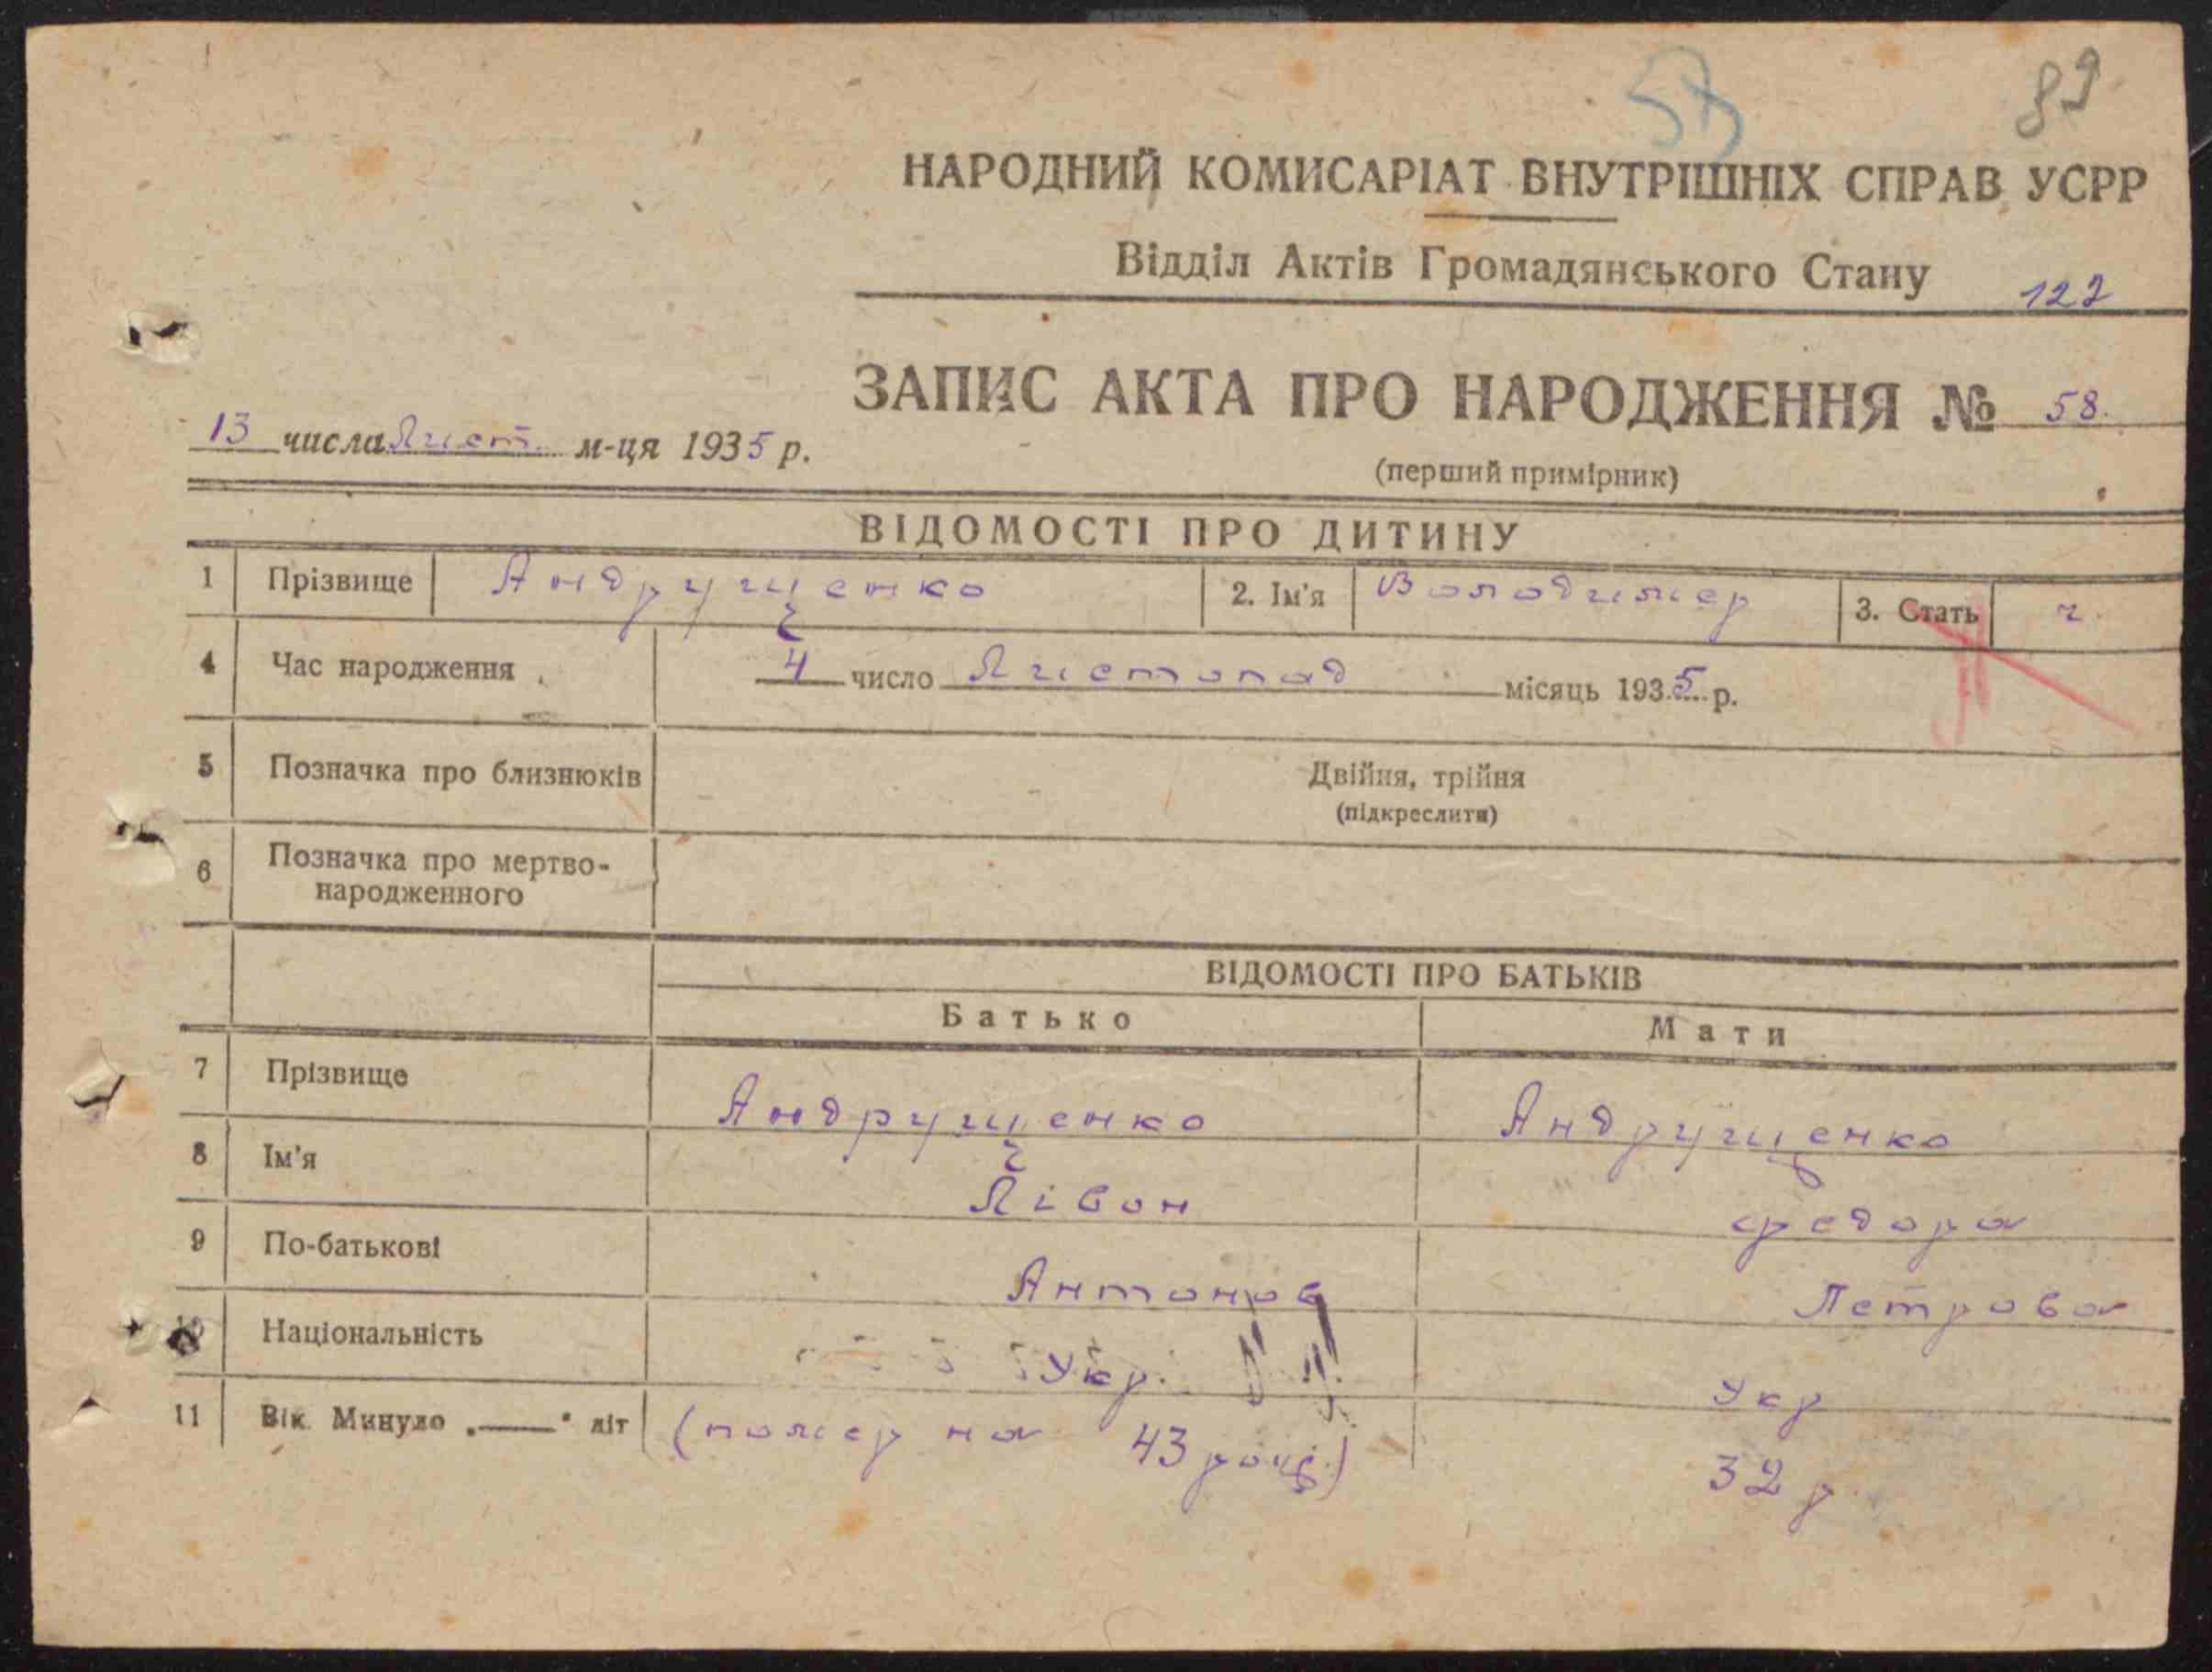 57
89
НАРОДНИЙ КОМИСАРІАТ ВНУТРІШНІХ СПРАВ УСРР
Відділ Актів Громадянського Стану
122
ЗАПИС АКТА ПРО НАРОДЖЕННЯ № 58.
13 числа Лист. м-ця 1935 р.
(перший примірник)
ВІДОМОСТІ ПРО ДИТИНУ
1 Прізвище Андрущенко 2. Ім'я Володимер 3. Стать ч.
4 Час народження 4 число Листопад місяць 1935 р.
5 Позначка про близнюків Двійня, трійня
(підкреслити)
6 Позначка про мертво-
народженного
ВІДОМОСТІ ПРО БАТЬКІВ
Батько Мати
7 Прізвище Андрущенко Андрущенко
8 Ім'я Лівон Федора
9 По-батькові Антонов Петрова
10 Національність Укр. Укр
11 Вік. Минуло „—" літ (помер на 43 році) 32 р.